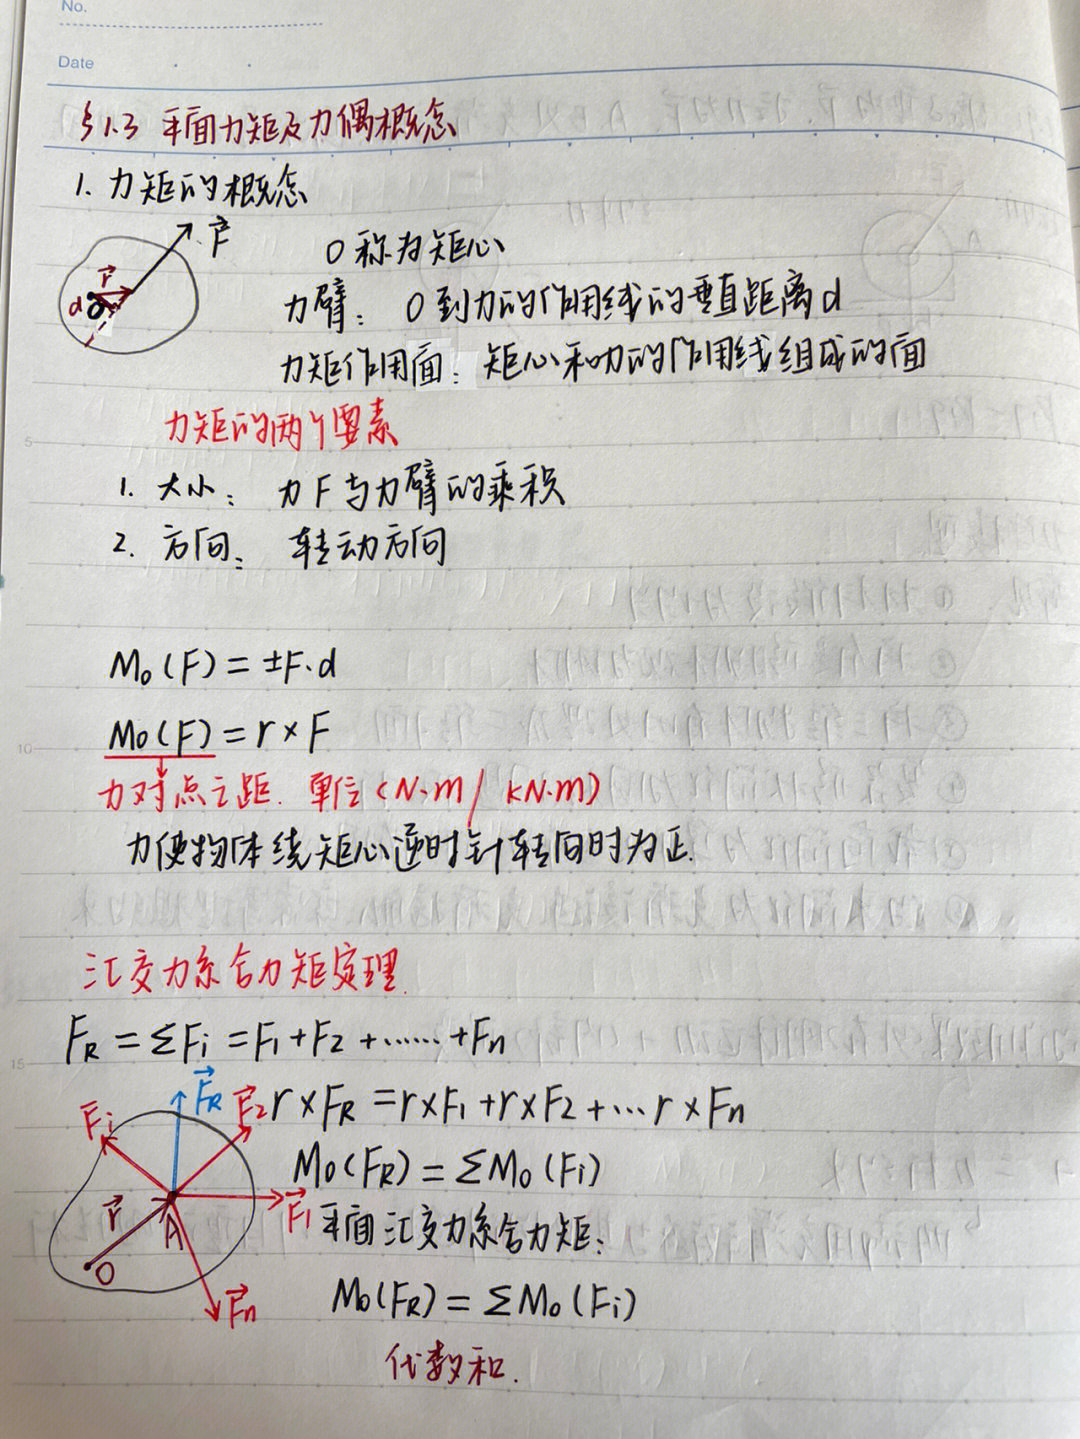 No.
Date
§1.3 平面力矩及力偶概念
1. 力矩的概念
F
r
d
O
O称为矩心
力臂: O到力的作用线的垂直距离d
力矩作用面: 矩心和力的作用线组成的面
力矩的两个要素
5
1. 大小: 力F与力臂的乘积
2. 方向: 转动方向
Mo(F) = ±F·d
10
Mo(F) = r × F
力对点之距. 单位 (N·m / kN·m)
力使物体绕矩心逆时针转向时为正.
汇交力系合力矩定理.
FR = ΣFi = F1 + F2 + …… + Fn
15
FR
F2
Fi
r × FR = r × F1 + r × F2 + … r × Fn
Mo(FR) = ΣMo(Fi)
F1
r
A
O
Fn
平面汇交力系合力矩:
Mo(FR) = ΣMo(Fi)
代数和.